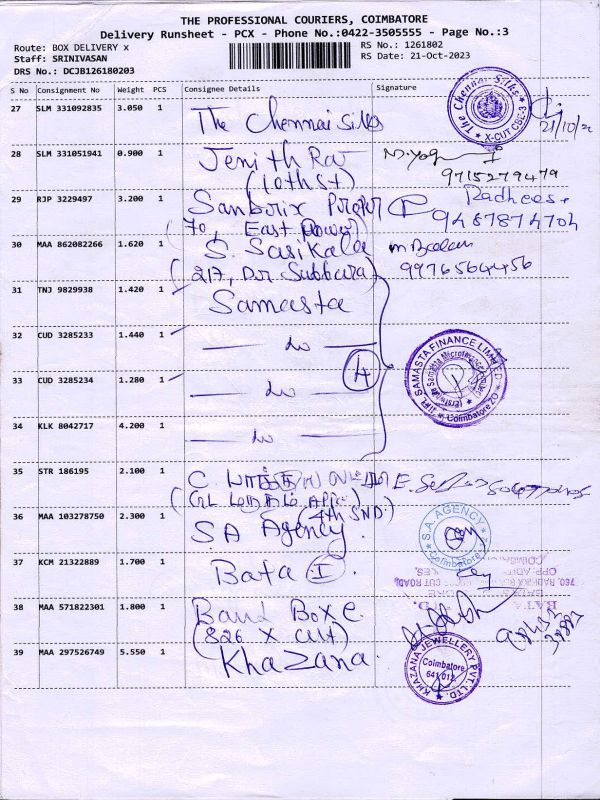 THE PROFESSIONAL COURIERS, COIMBATORE
Delivery Runsheet - PCX - Phone No.:0422-3505555 - Page No.:3
Route: BOX DELIVERY x
RS No.: 1261802
Staff: SRINIVASAN
RS Date: 21-Oct-2023
DRS No.: DCJB126180203
S No Consignment No Weight PCS Consignee Details Signature
27 SLM 331092835 3.050 1 The Chennai Silks
The Chennai Silks
X-CUT CBE-3
28 SLM 331051941 0.900 1 Jenith Raj
(10th St)
9715279479
29 RJP 3229497 3.200 1
70, East Power)
9487874704
30 MAA 862082266 1.620 1 S. Sasikala
(217, Dr. Subbara)
9976564456
31 TNJ 9829938 1.420 1 Samasta
32 CUD 3285233 1.440 1 — do —
33 CUD 3285234 1.280 1 — do —
4
IIFL SAMASTA FINANCE LIMITED
Coimbatore ZO
34 KLK 8042717 4.200 1 — do —
35 STR 186195 2.100 1 C
(4th SND)
36 MAA 103278750 2.300 1 SA Agency
S.A. AGENCY
Coimbatore
37 KCM 21322889 1.700 1 Bata I
38 MAA 571822301 1.800 1 Band Box C
(826 X Cut)
39 MAA 297526749 5.550 1 Khazana
KHAZANA JEWELLERY PVT. LTD.
Coimbatore
641 012